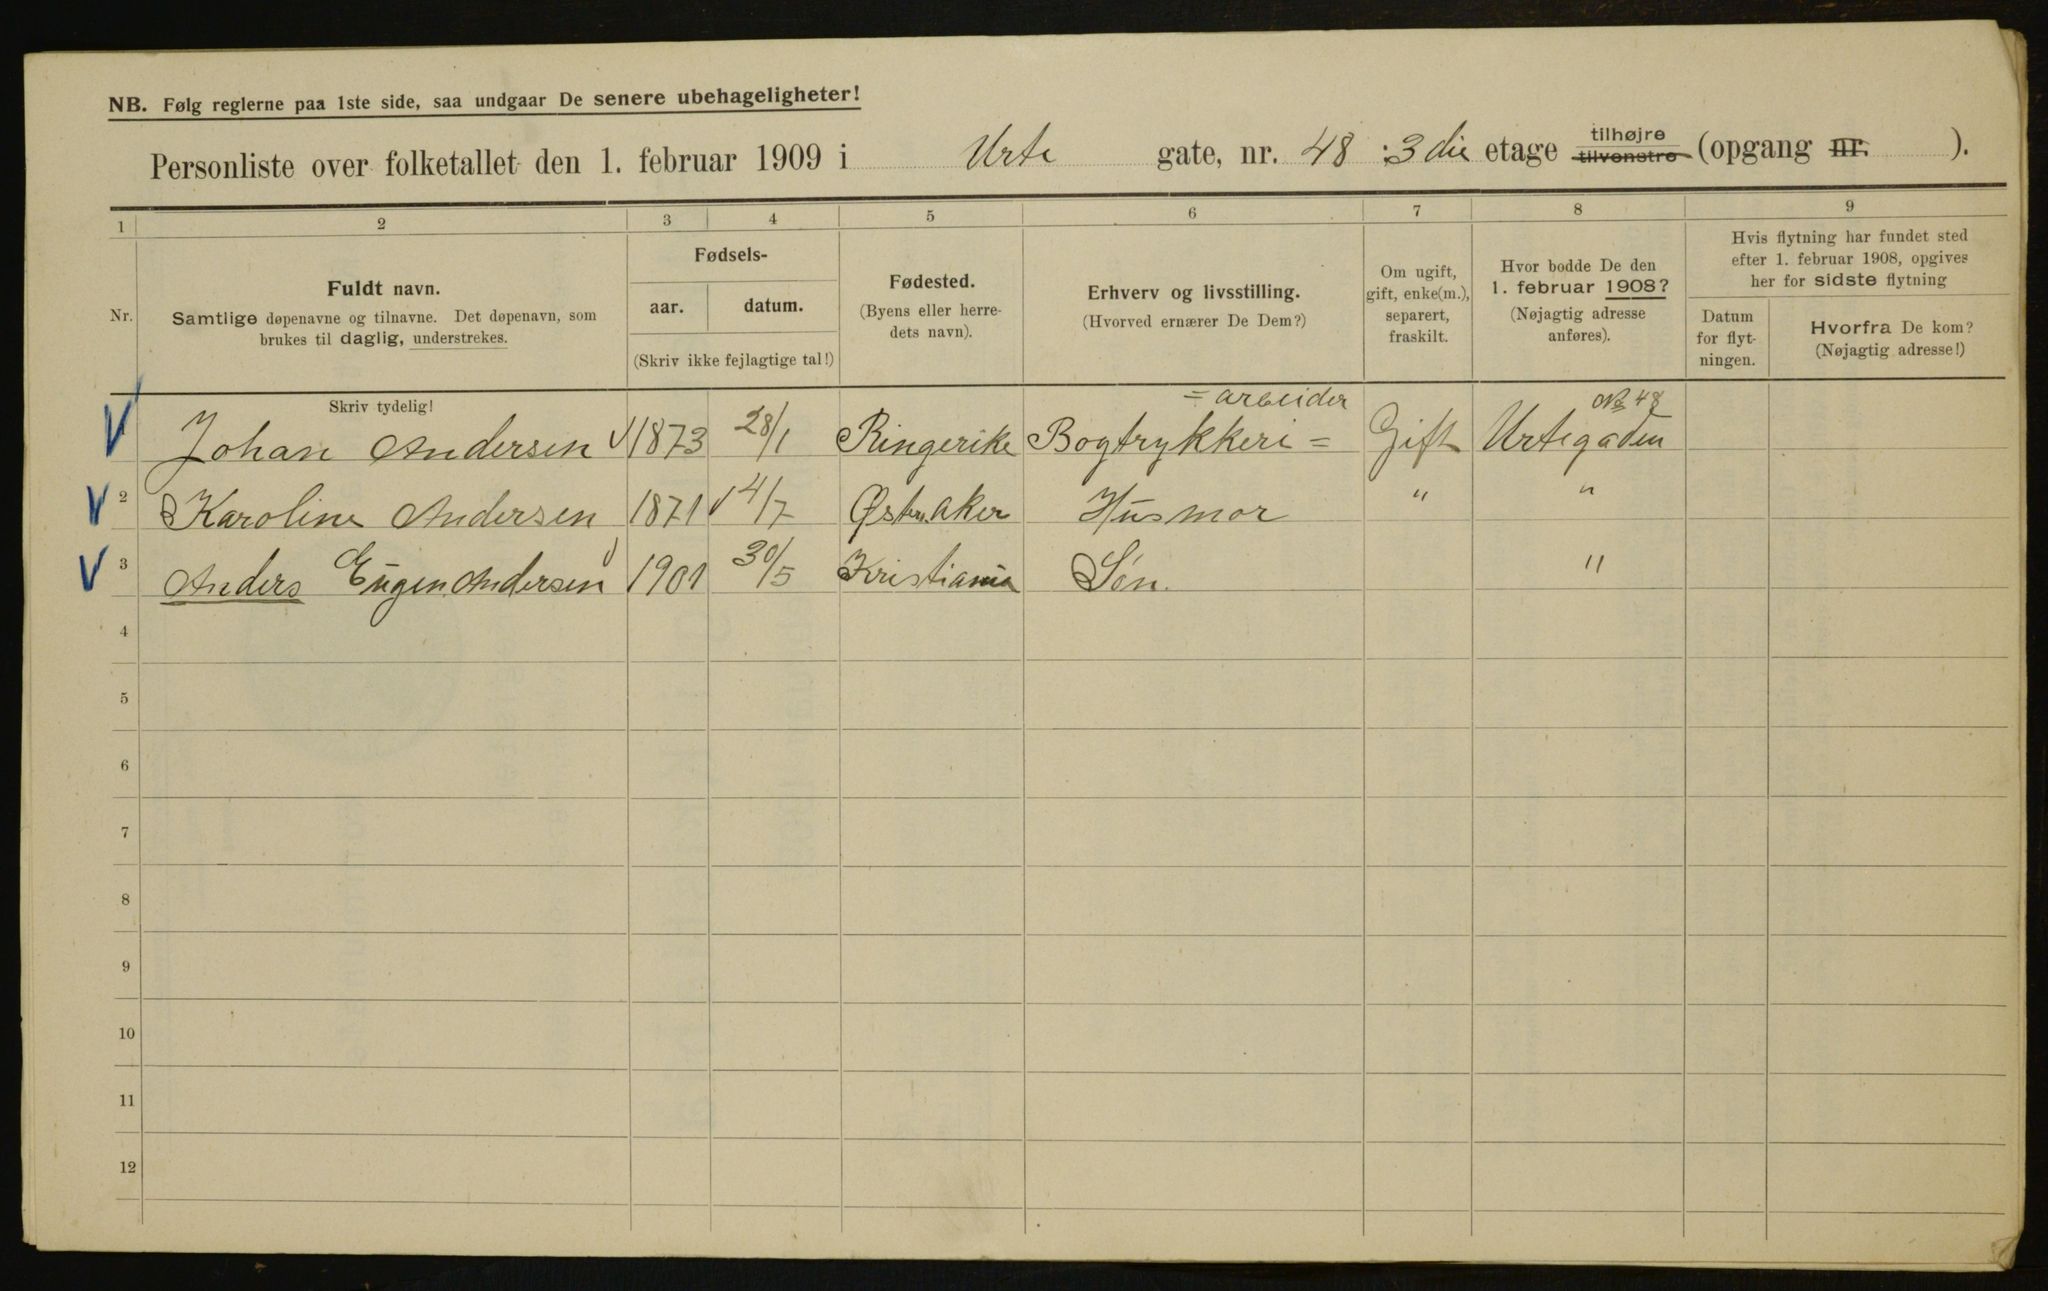 NB. Følg reglerne paa 1ste side, saa undgaar De senere ubehageligheter!
Personliste over folketallet den 1. februar 1909 i Urte gate, nr. 48 : 3die etage tilhøjre tilvenstre (opgang nr. ).
1 2 3 4 5 6 7 8 9
Nr.
Fuldt navn.
Samtlige døpenavne og tilnavne. Det døpenavn, som
brukes til daglig, understrekes.
Fødsels-
aar. datum.
(Skriv ikke fejlagtige tal!)
Fødested.
(Byens eller herre-
dets navn).
Erhverv og livsstilling.
(Hvorved ernærer De Dem?)
Om ugift,
gift, enke(m.),
separert,
fraskilt.
Hvor bodde De den
1. februar 1908?
(Nøjagtig adresse
anføres).
Hvis flytning har fundet sted
efter 1. februar 1908, opgives
her for sidste flytning
Datum
for flyt-
ningen.
Hvorfra De kom?
(Nøjagtig adresse!)
Skriv tydelig!
= arbeider
No 48
Johan Andersen 1873 28/1 Ringerike Bogtrykkeri = Gift Urtegaden
2 Karoline Andersen 1871 4/7 Østre Aker Husmor " "
3 Anders Eugen Andersen 1901 30/5 Kristiania Søn. "
4
5
6
7
8
9
10
11
12